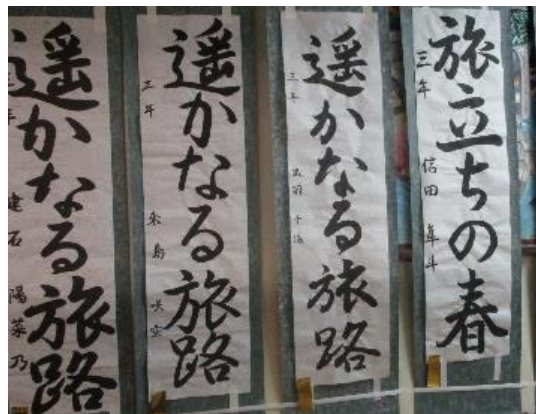 旅立ちの春
三年 信田 隼斗
遥かなる旅路
三年 出羽
遥かなる旅路
三年 来島 咲空
遥かなる旅路
年 建石 陽菜乃